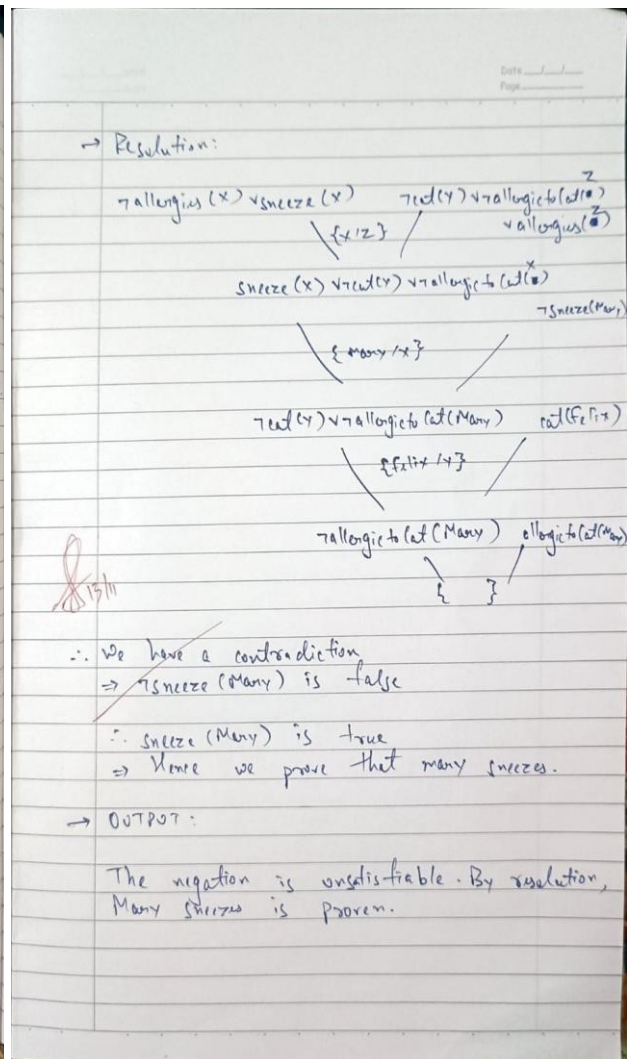 Date __/__/__
Page
→ Resolution:
¬allergies(x) ∨ sneeze(x) ¬cat(y) ∨ ¬allergictoCat(z)
∨ allergies(z)
{x/z}
sneeze(x) ∨ ¬cat(y) ∨ ¬allergictoCat(x)
¬sneeze(Mary)
{Mary/x}
¬cat(y) ∨ ¬allergicto Cat(Mary) cat(Felix)
{felix/y}
¬allergictoCat(Mary) allergictoCat(Mary)
{ }
13/11
∴ We have a contradiction
⇒ ¬sneeze(Mary) is false
∴ sneeze(Mary) is true
⇒ Hence we prove that mary sneezes.
→ OUTPUT:
The negation is unsatisfiable. By resolution,
Mary sneezes is proven.